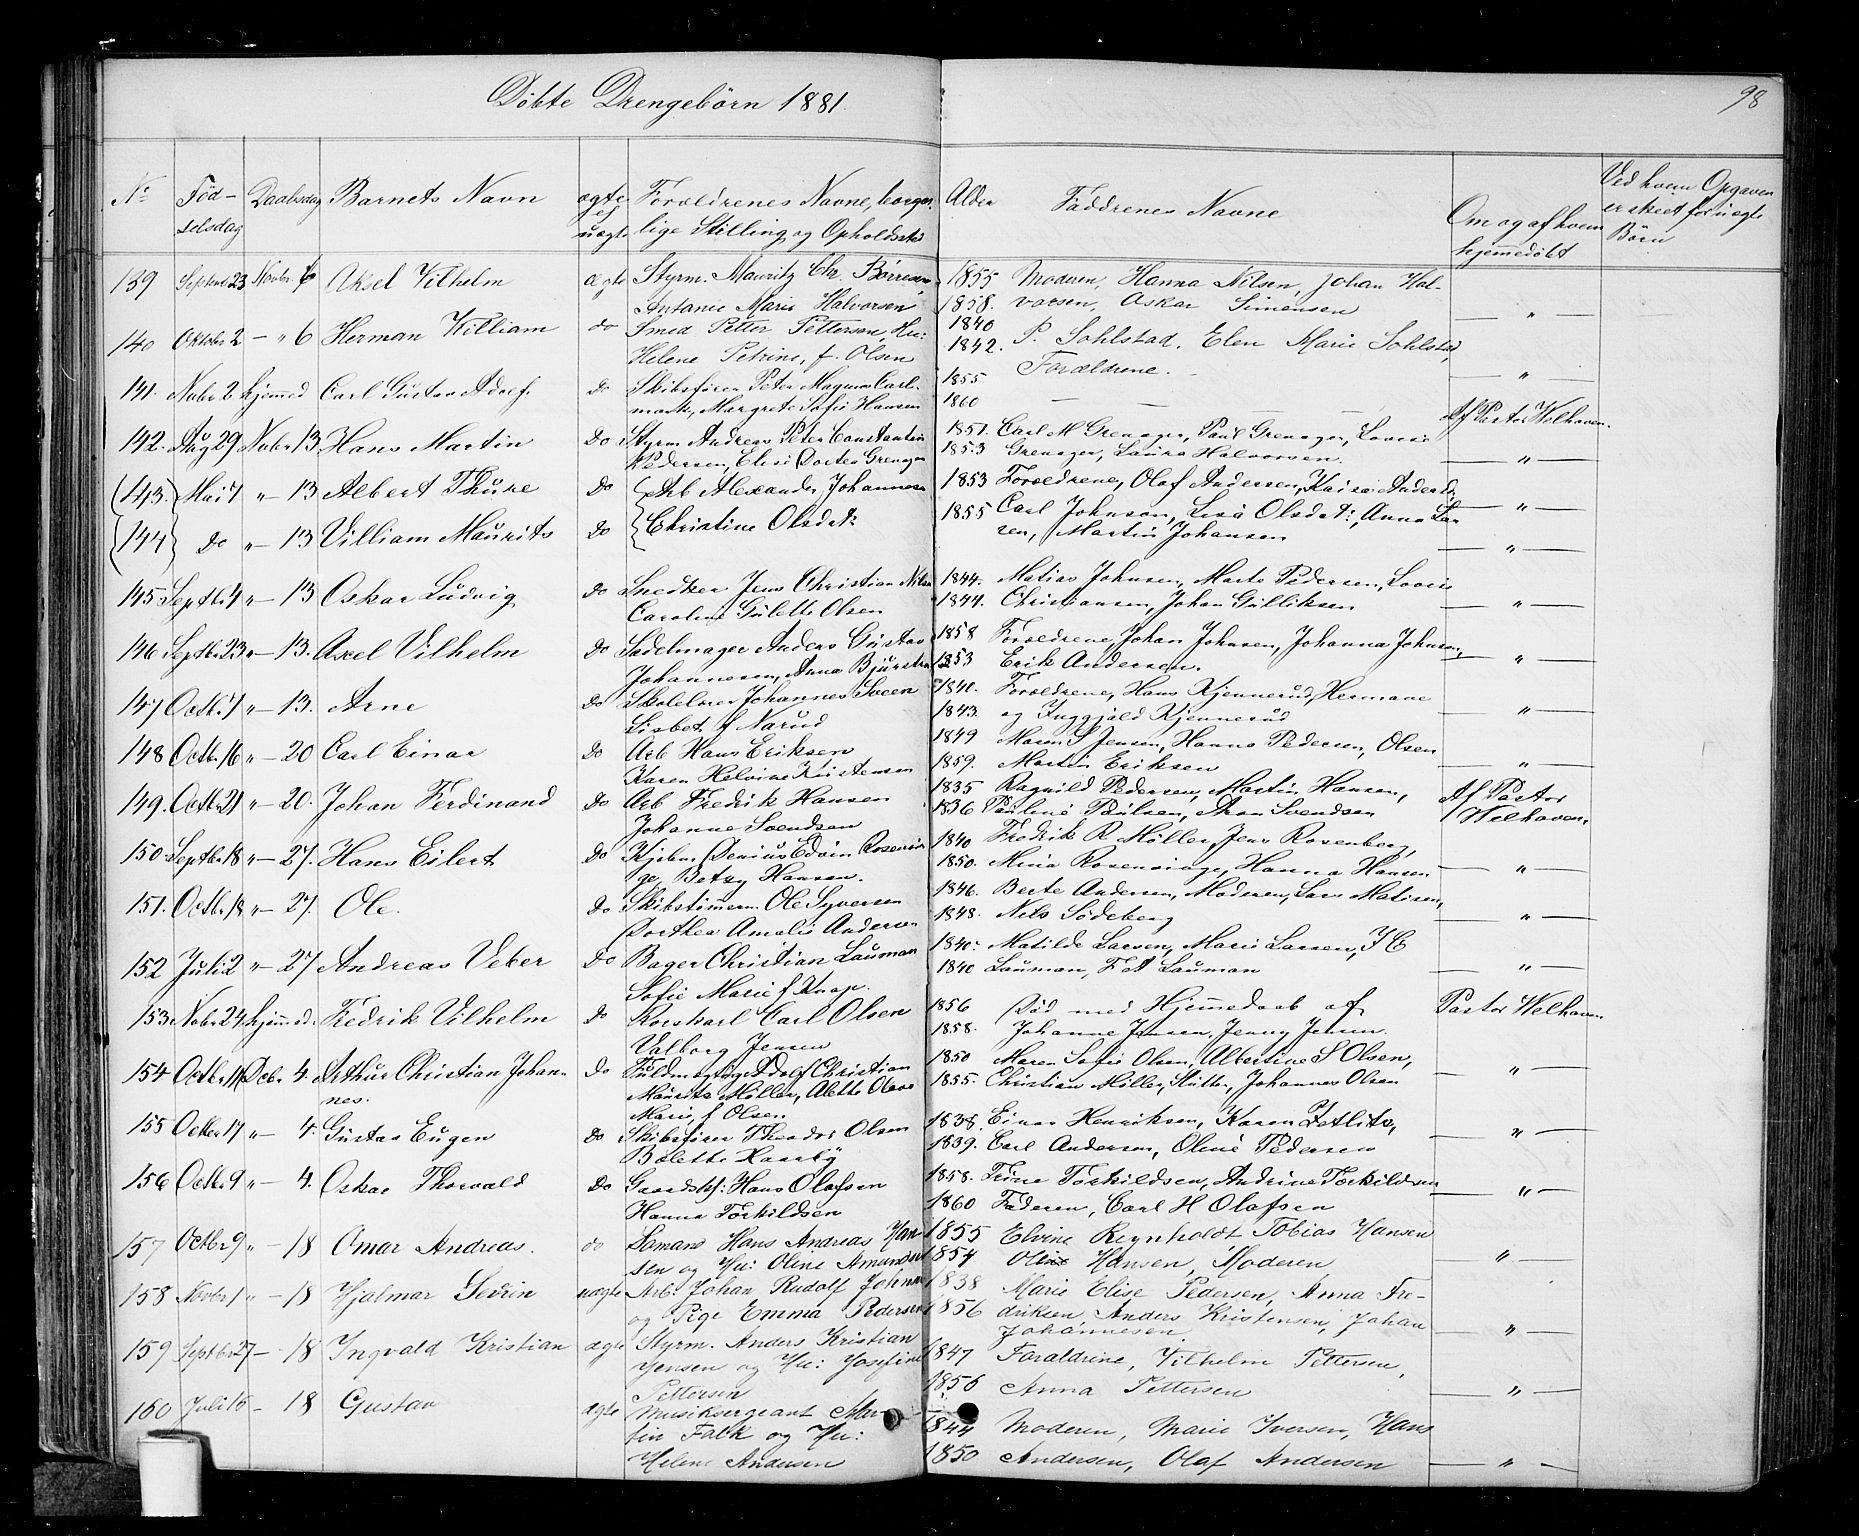 Döbte Drengebörn 1881.
98
No Föd- Daabsdag Barnets Navn ægte Forældrenes Navne, borger- Alder Faddrenes Navne Om og af hvem Ved hvem Opgaven
selsdag uægte lige Stilling og Opholdssted hjemmedöbt er skeet for uægte
Börn
139 Septemb 23 Novbr 6 Aksel Vilhelm ægte Styrm. Mauritz Chr. Börresen 1855 Moderen, Hanna Nilsen, Johan Hal-
Antanie Marie Halvorsen 1858. vorsen, Oskar Simensen — " —
140 Oktober 2 — " 6 Herman William do Smed Petter Pettersen, Hu: 1840 P. Sohlstad, Elen Marie Sohlstad
Helene Petrine, f. Olsen 1842. Forældrene. — " —
141. Novbr 2 hjemmed Carl Gustav Adolf. do Skibsförer Peter Magnus Carl- 1855
mark, Margrete Sofie Hansen 1860 — — — — Af Pastor Welhaven.
142. Aug 29 Novbr 13 Hans Martin do Styrm Andreas Peter Constantin 1851. Carl M Grenager, Paul Grenager, Lovise
Pedersen, Elise Dortea Grenager 1853 Grenager, Laura Halvorsen. — " —
(143.) Mai 7 " 13 Albert Thure do Arb Alexander Johannesen 1853 Forældrene, Olaf Andersen, Kaisa Anders — " —
(144) do " — 13 Villiam Maurits do Christine Olsdatr 1855 Carl Johnson, Lisa Olsdatr, Anna Lar-
sen, Martin Johansen — " —
145 Septbr 4 " — 13 Oskar Ludvig do Snedker Jens Christian Nilsen 1844. Matias Johnsen, Marte Pedersen, Lovise
Caroline Gulette Olsen 1844. Christiansen, Johan Gulliksen — " —
146 Septbr 23 " — 13. Axel Vilhelm do Sadelmager Anders Gustav 1858 Forældrene, Johan Johnsen, Johanna Johnsen,
Johannesen, Anna 1853 Erik Andersen. — " —
147 Octbr 7 " — 13. Arne do Skolelærer Johannes Sveen 1840. Forældrene, Hans Kjennerud, Hermane
Lisbet f Narud 1843. og Inggjald Kjennerud — " —
148 Octbr 16 " — 20 Carl Einar do Arb Hans Eriksen 1849 Maren S Jensen, Hanna Pedersen, Olsen
Karen Helvine Kristensen 1859. Martin Eriksen — " —
149. Octbr 21 " — 20. Johan Ferdinand do Arb Fredrik Hansen 1835 Ragnild Pedersen, Martin Hansen, Af Pastor
Johanne Svendsen 1836 Pauline Paulsen, Aron Svendsen Welhaven,
150. Septbr 18 " — 27. Hans Eilert do Kjöbm Denius Edvin Rosenvin- 1840 Fredrik R Möller, Jens Rosenberg,
ge, Betzy Hansen. 1850. Mina Rosenvinge, Hanna Hansen — " —
151. Octbr 18 " — 27. Ole. do Skibstimmerm. Ole Syversen 1846. Berte Andersen, Moderen, Lars Matisen,
Dorthea Amalie Andersen 1848. Nils Södeberg — " —
152 Juli 2 " — 27 Andreas Veber do Bager Christian Lauman 1840. Matilde Larsen, Marie Larsen, J C
Sofie Marie f Knap. 1840 Lauman, F A Lauman — " —
153 Novbr 24 hjemmed. Fredrik Vilhelm do Korskarl Carl Olsen 1856 Död med Hjemmedaab af Pastor Welhaven
Valborg Jensen 1858. Johanne Jensen, Jenny Jensen.
154 Octbr 14 Decbr 4. Arthur Christian Johan- do Fuldmægtig Adolf Christian 1850 Maren Sofie Olsen, Albertine S Olsen,
nes. Maurits Möller, Alette Olava 1855. Christian Möller, Sütter, Johannes Olsen — " —
Marie f Olsen
155 Octbr 17 " — 4. Gustav Eugen do Skibsförer Theodor Olsen 1838. Einar Henriksen, Karen Zetlitz,
Bolette Haasby 1839. Carl Andersen, Oline Pedersen — " —
156 Octbr 9 " — 4. Oskar Thorvald do Gaardskf: Hans Olafsen 1858. Trine Torkildsen, Andrine Torkildsen
Hanna Torkildsen 1860 Faderen, Carl H Olafsen — " —
157 Octbr 9 " — 18 Omar Andreas. do Sömand Hans Andreas Han- 1855 Elvine Reynholdt Tobias Hansen
sen og Hu: Oline Amundsen 1854 Oline Hansen, Moderen — " —
158 Novbr 1 " — 18 Hjalmar Sevrin uægte Arb. Johan Rudolf Johnsen 1838 Marie Elise Pedersen, Anna Fre-
og Pige Emma Pedersen 1856 driksen, Anders Kristensen, Johan — " —
Johannesen
159 Septbr 27 — 18 Ingvald Kristian ægte Styrm. Anders Kristian 1847 Foraldrene, Vilhelm Pettersen,
Jensen og Hu: Josefine 1856 Anna Pettersen — " —
Pettersen
160 Juli 16 — 18 Gustav ægte Musiksergeant Mar- 1844 Moderen, Marie Iversen, Hans
tin Falk og Hu: 1850 Andersen, Olaf Andersen — " —
Helene Andersen